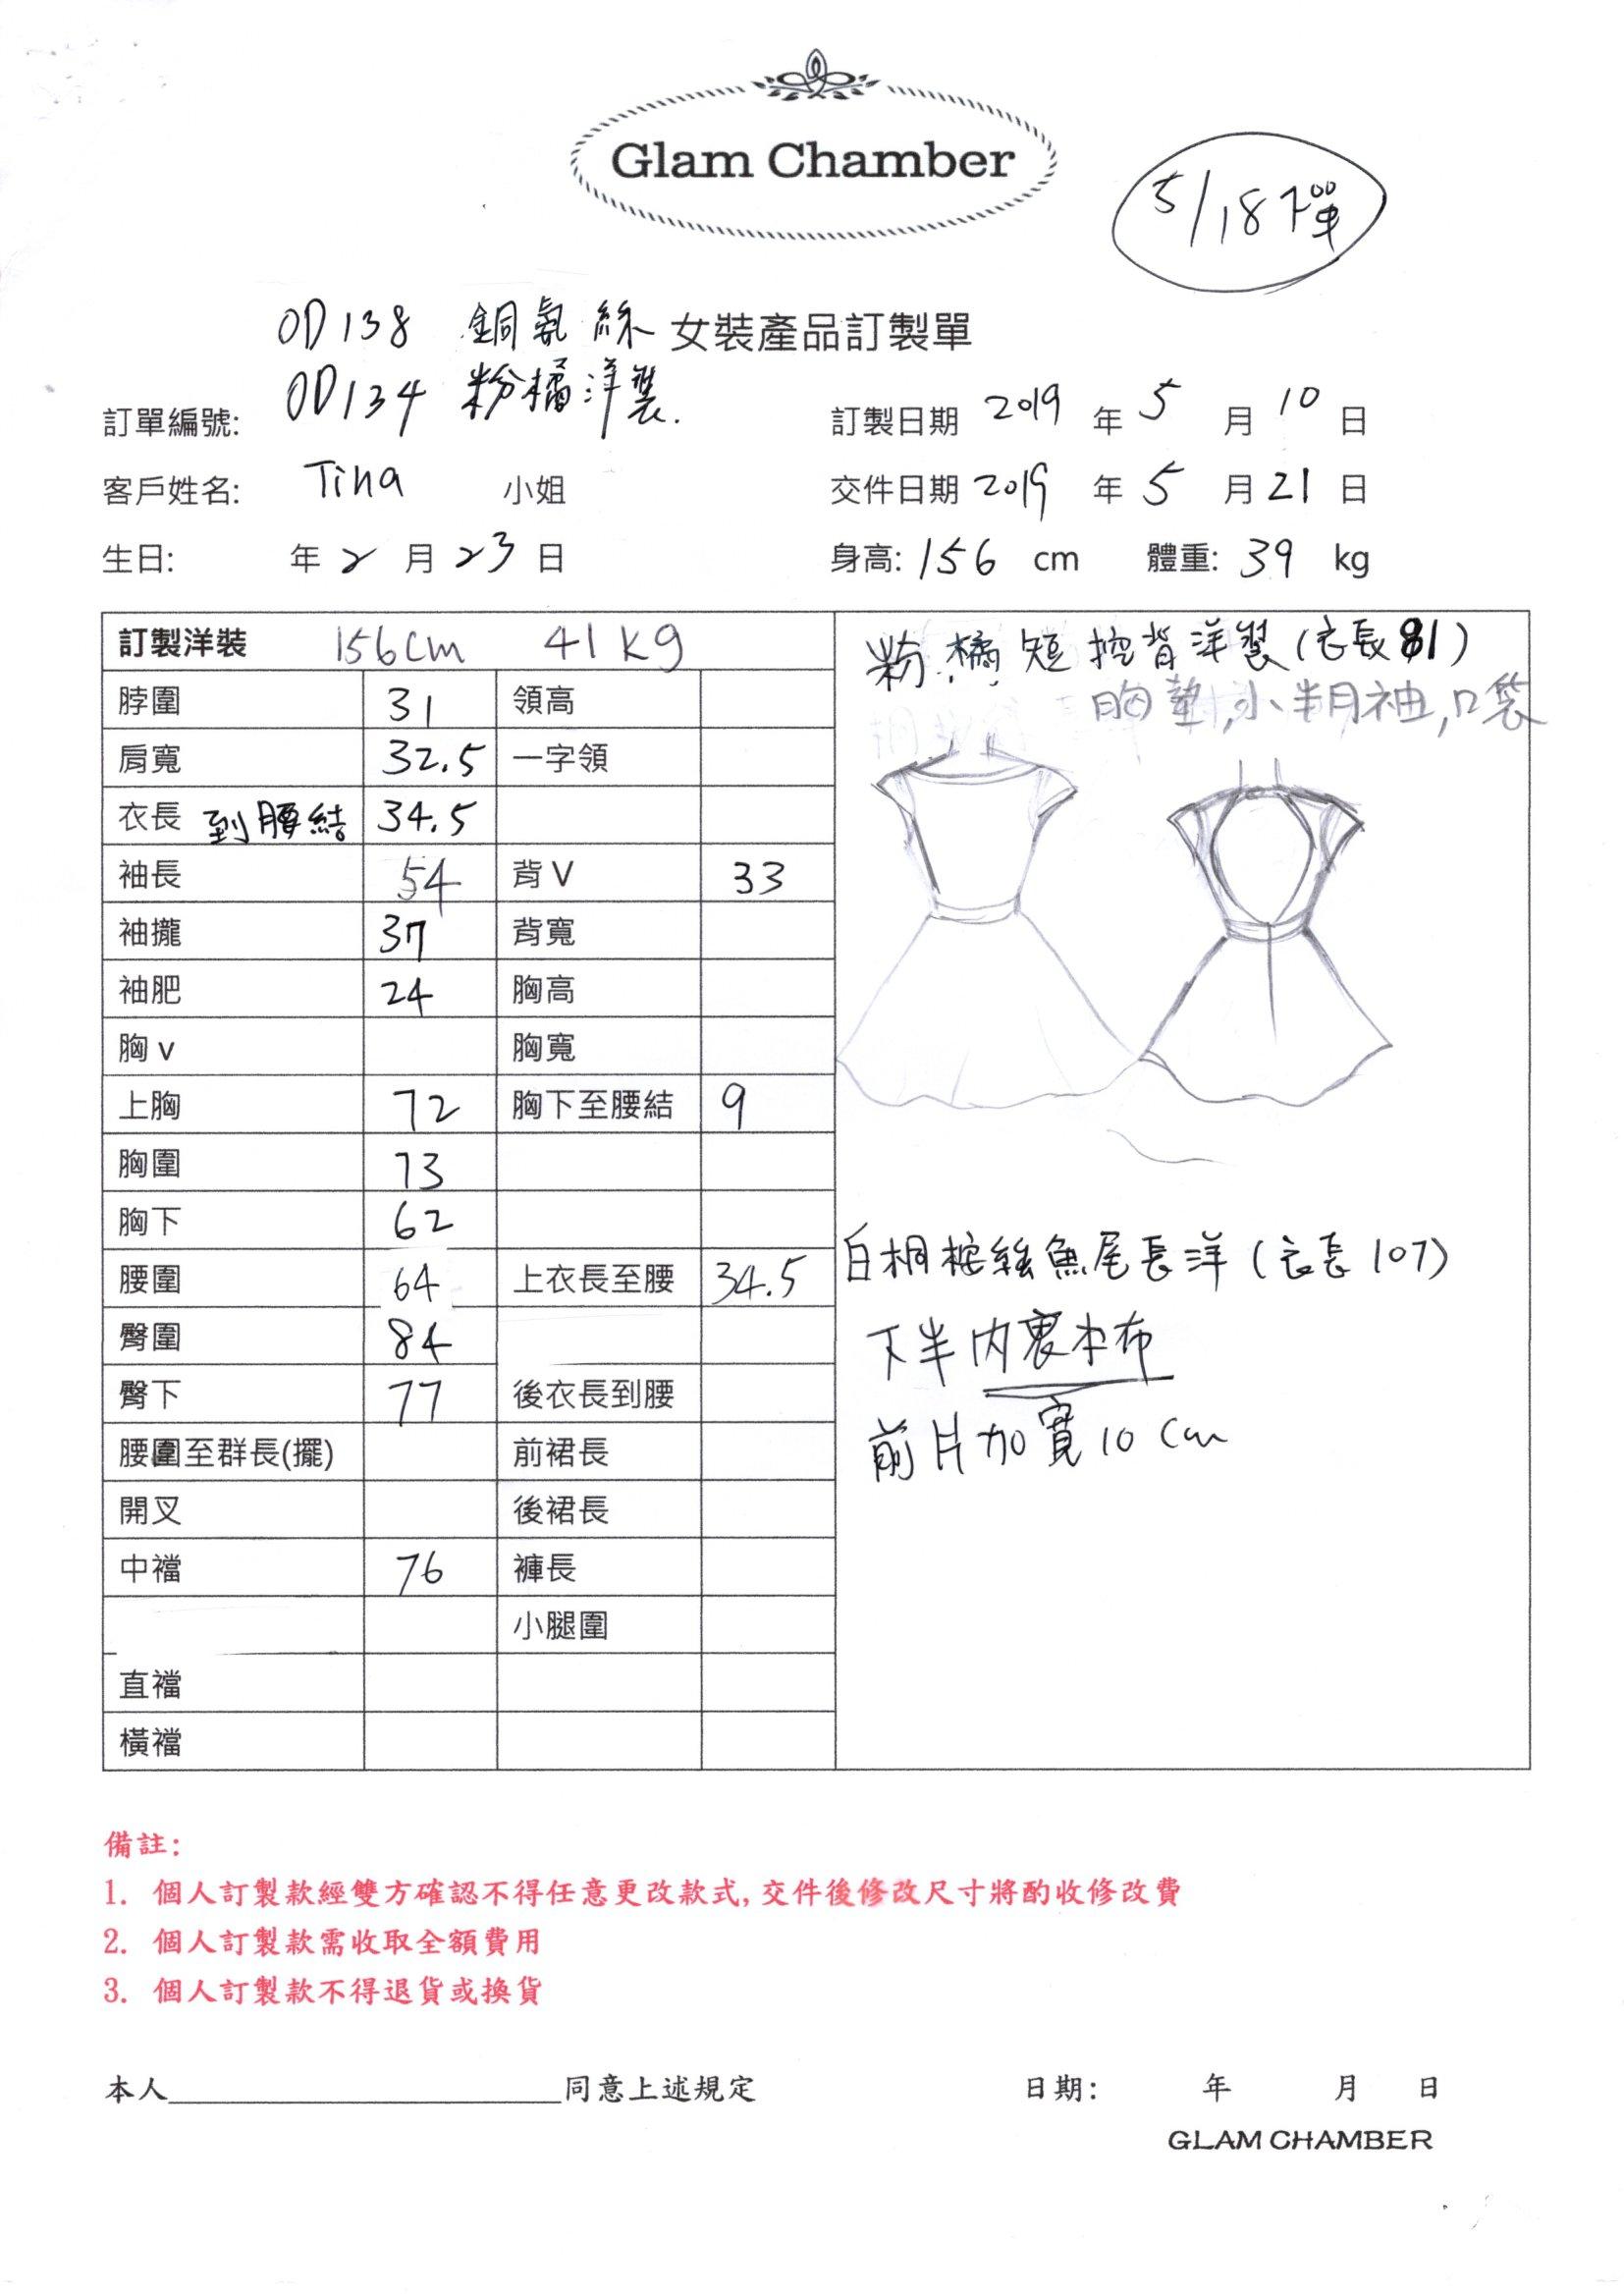 Glam Chamber
5/18下單
OD138 銅氨絲 女裝產品訂製單
OD134 粉橘洋裝.
訂單編號:
訂製日期 2019 年 5 月 10 日
客戶姓名: Tina 小姐
交件日期 2019 年 5 月 21 日
生日: 年 2 月 23 日
身高: 156 cm 體重: 39 kg
訂製洋裝 156cm 41kg
脖圍 31 領高
肩寬 32.5 一字領
衣長 到腰結 34.5
袖長 54 背V 33
袖攏 37 背寬
袖肥 24 胸高
胸v 胸寬
上胸 72 胸下至腰結 9
胸圍 73
胸下 62
腰圍 64 上衣長至腰 34.5
臀圍 84
臀下 77 後衣長到腰
腰圍至群長(擺) 前裙長
開叉 後裙長
中襠 76 褲長
小腿圍
直襠
橫襠
粉橘短挖背洋裝(衣長81)
胸墊,小半月袖,口袋
白桐桉絲魚尾長洋(衣長107)
下半內裏本布
前片加寬10cm
備註:
1. 個人訂製款經雙方確認不得任意更改款式,交件後修改尺寸將酌收修改費
2. 個人訂製款需收取全額費用
3. 個人訂製款不得退貨或換貨
本人____________________同意上述規定
日期: 年 月 日
GLAM CHAMBER